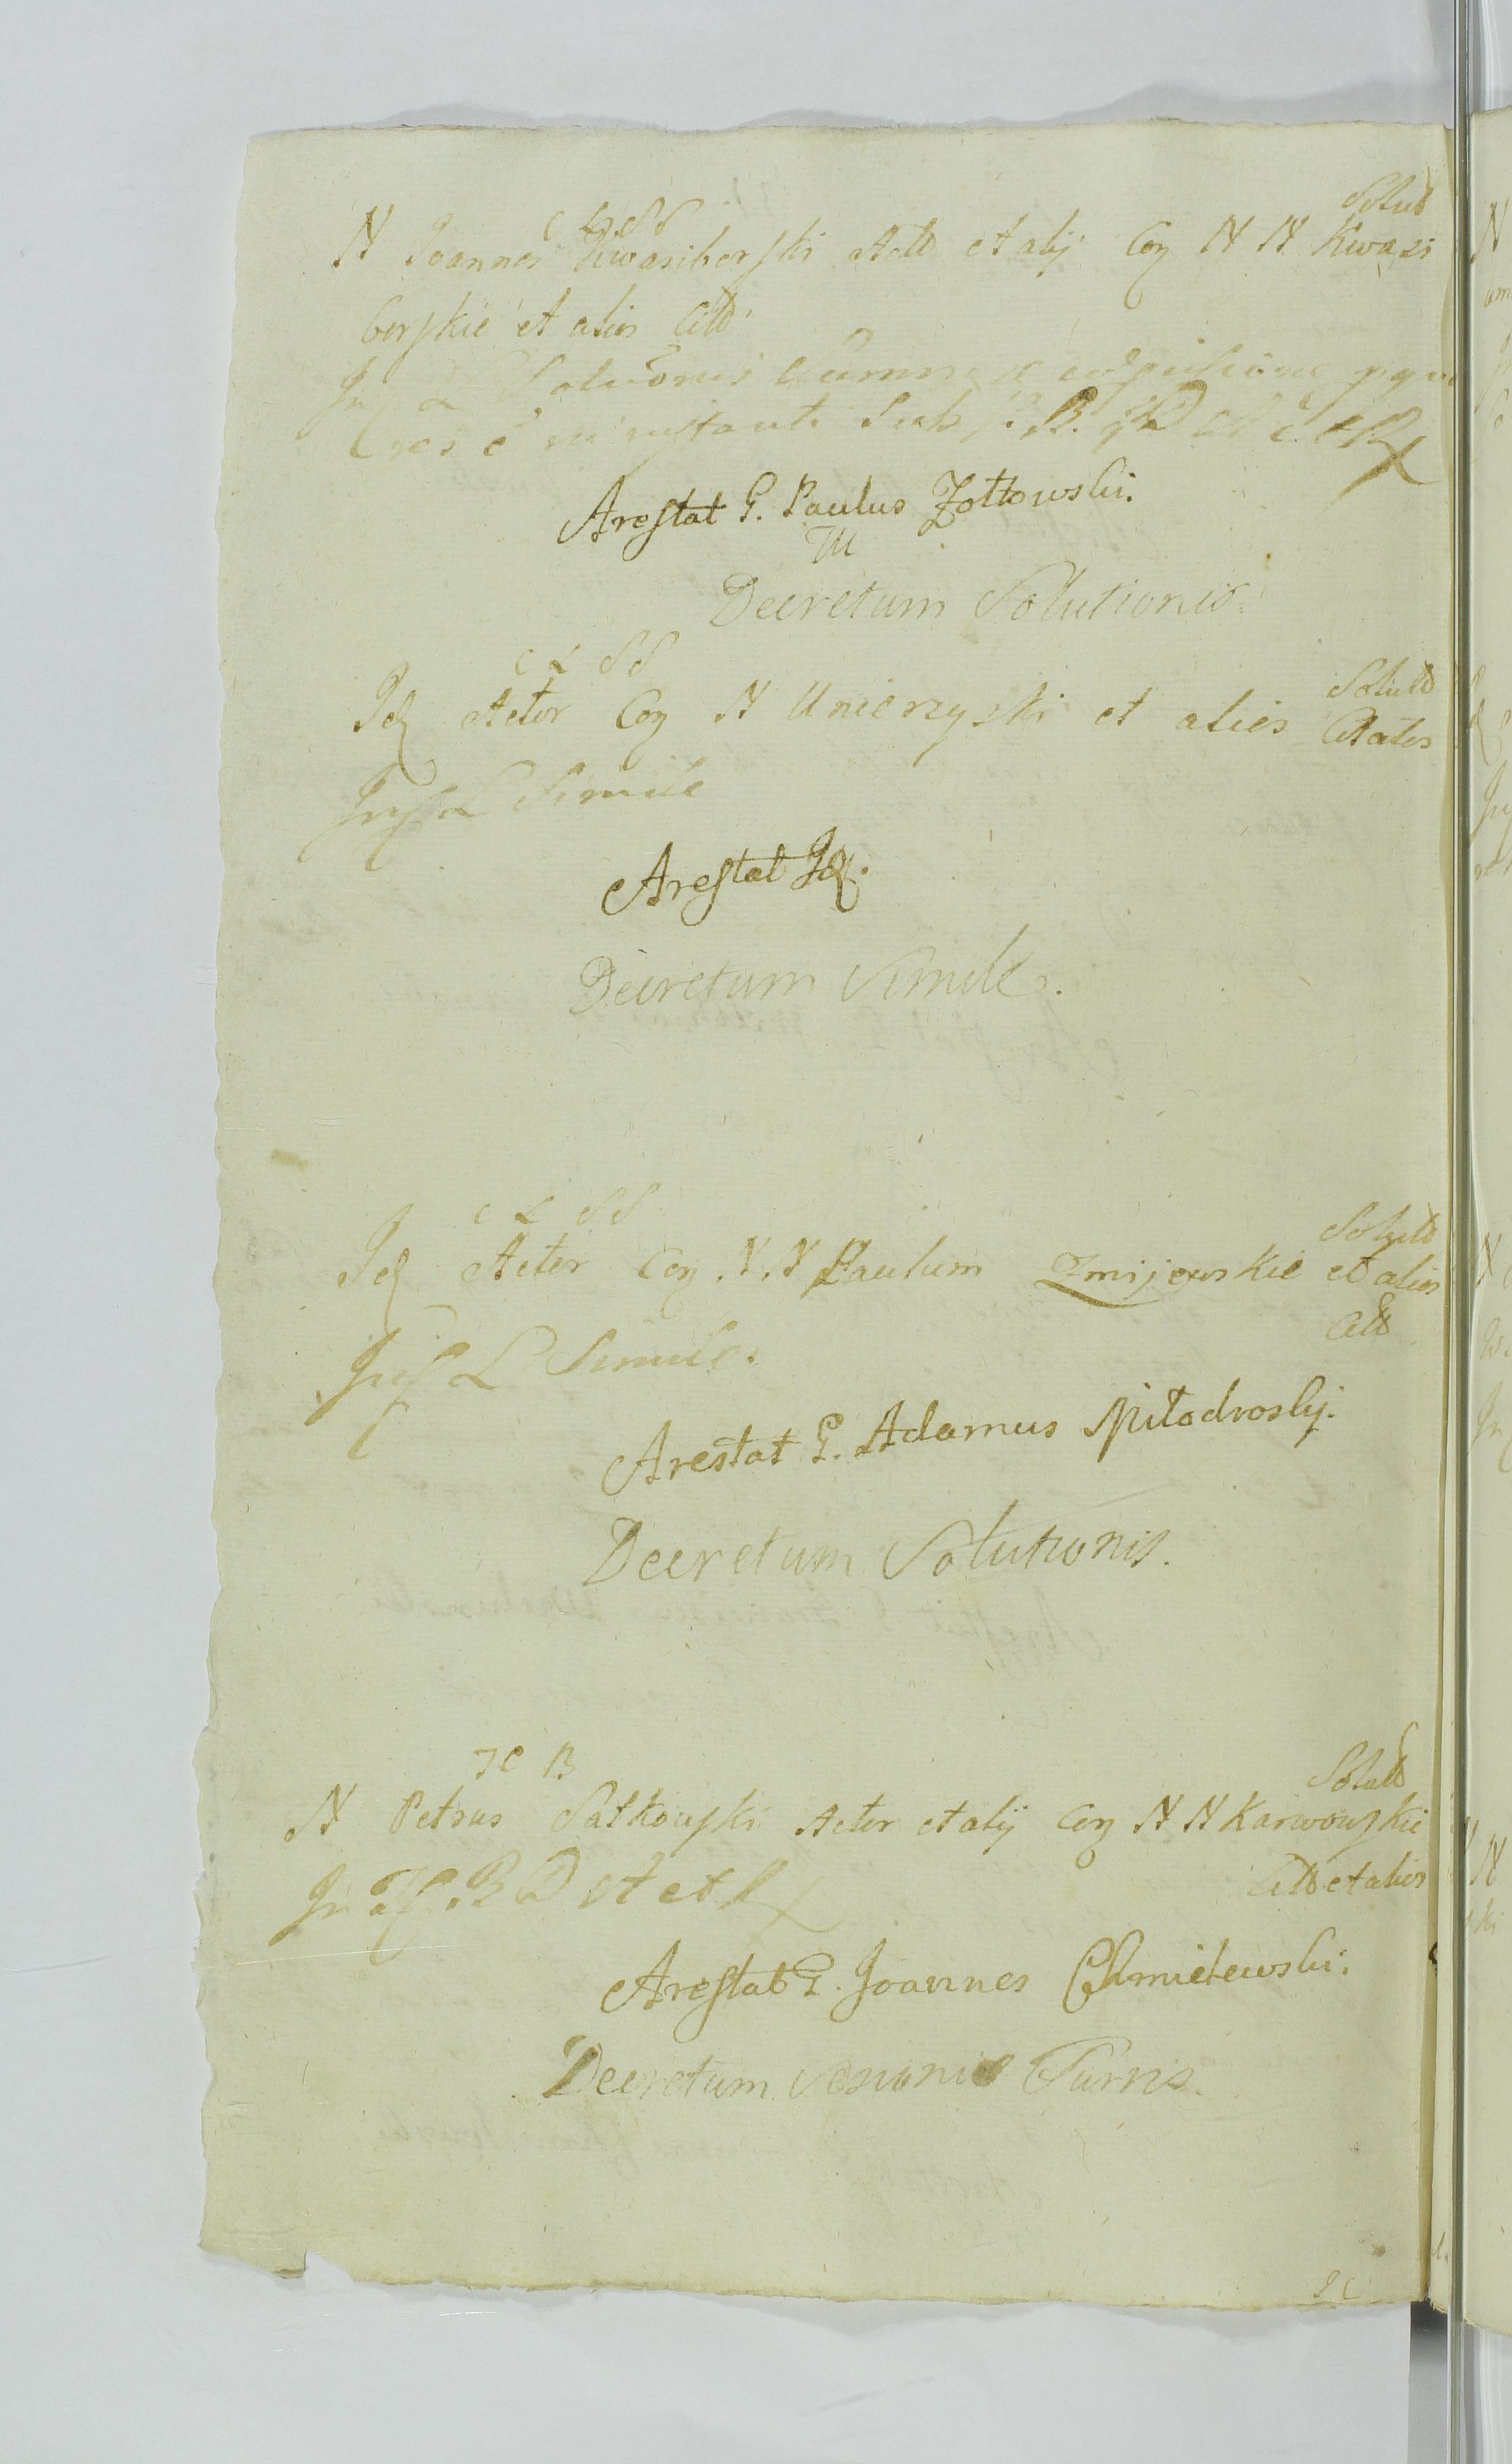 C L SS Solut
N Joannes Kwasiborski Act et alij Con N N Kwasi
borskie et alios Citt
In Solutionis Summ
in instanti Sub
Arestat G. Paulus Zołtowski.
M
Decretum Solutionis.
C L SS Solutt
Id Actor Con N Unierzyski et alios Citatos
L Simile
Arestat Id.
Decretum Simile.
C L SS Solutt
Id Actor Con N. N Paulum Zmijewskie et alios
Citt
L Simile.
Arestat G. Adamus Miłodroski.
Decretum Solutionis.
JC B Solutt
N Petrus Sałkowski Actor et alij Con N N Karwowskie
In R D et Citt et alios
Arestat G. Joannes Chmielewski.
Decretum Turris.